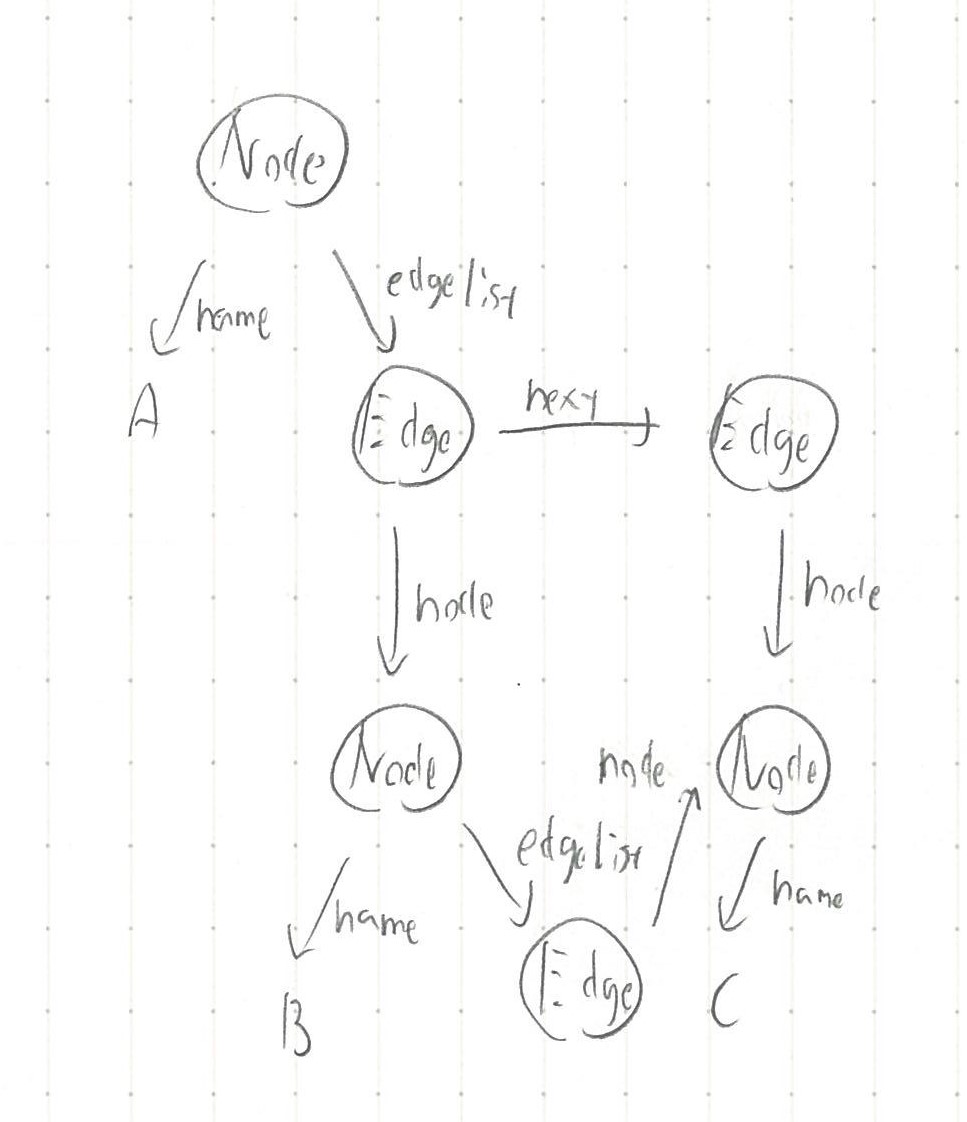 Node
name
edgelist
A
Edge
next
Edge
node
node
Node
node
Node
edgelist
name
name
B
Edge
C